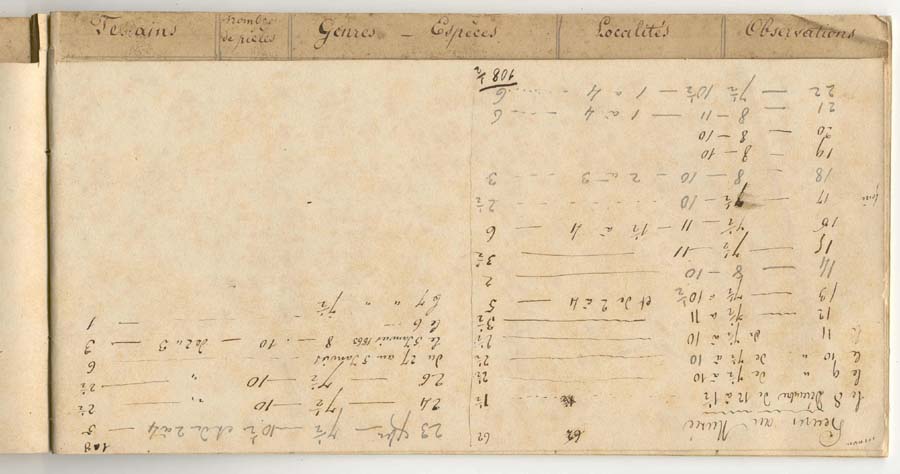 Terrains Nombre de pièces Genres – Espèces Localités Observations
Heures au Musée 62 62
le 8 Décembre de 12 à 1½ 1½
le 9 " de 7½ à 10 2½
le 10 " de 7½ à 10 2½
le 11 de 7½ à 10 2½
12 — 7½ à 11 — 3½
13 — 7½ à 10½ et de 2 à 4 — 5
14 — 8 – 10 — 2
15 — 7½ — 11 — 3½
16 7½ — 11 — 1½ à 4 — 6
17 — 7½ – 10 - - - 2½
18 — 8 – 10 — 2 à 3 — 3
19 — 8 – 10
20 — 8 – 10
21 — 8 — 11 — 1 à 4 - - - 6
22 — 7½ 10½ — 1 à 4 - - - 6
108 ½
108
23 — 7½ — 10½ et de 2 à 4 — 5
24 — 7½ — 10 " — 2½
26 — 7½ — 10 " — 2½
du 27 au 5 Janvier 6
le 5 Janvier 1883 8 - 10 - de 2 à 3 — 3
le 6 — — 1
6 7 " " 7½